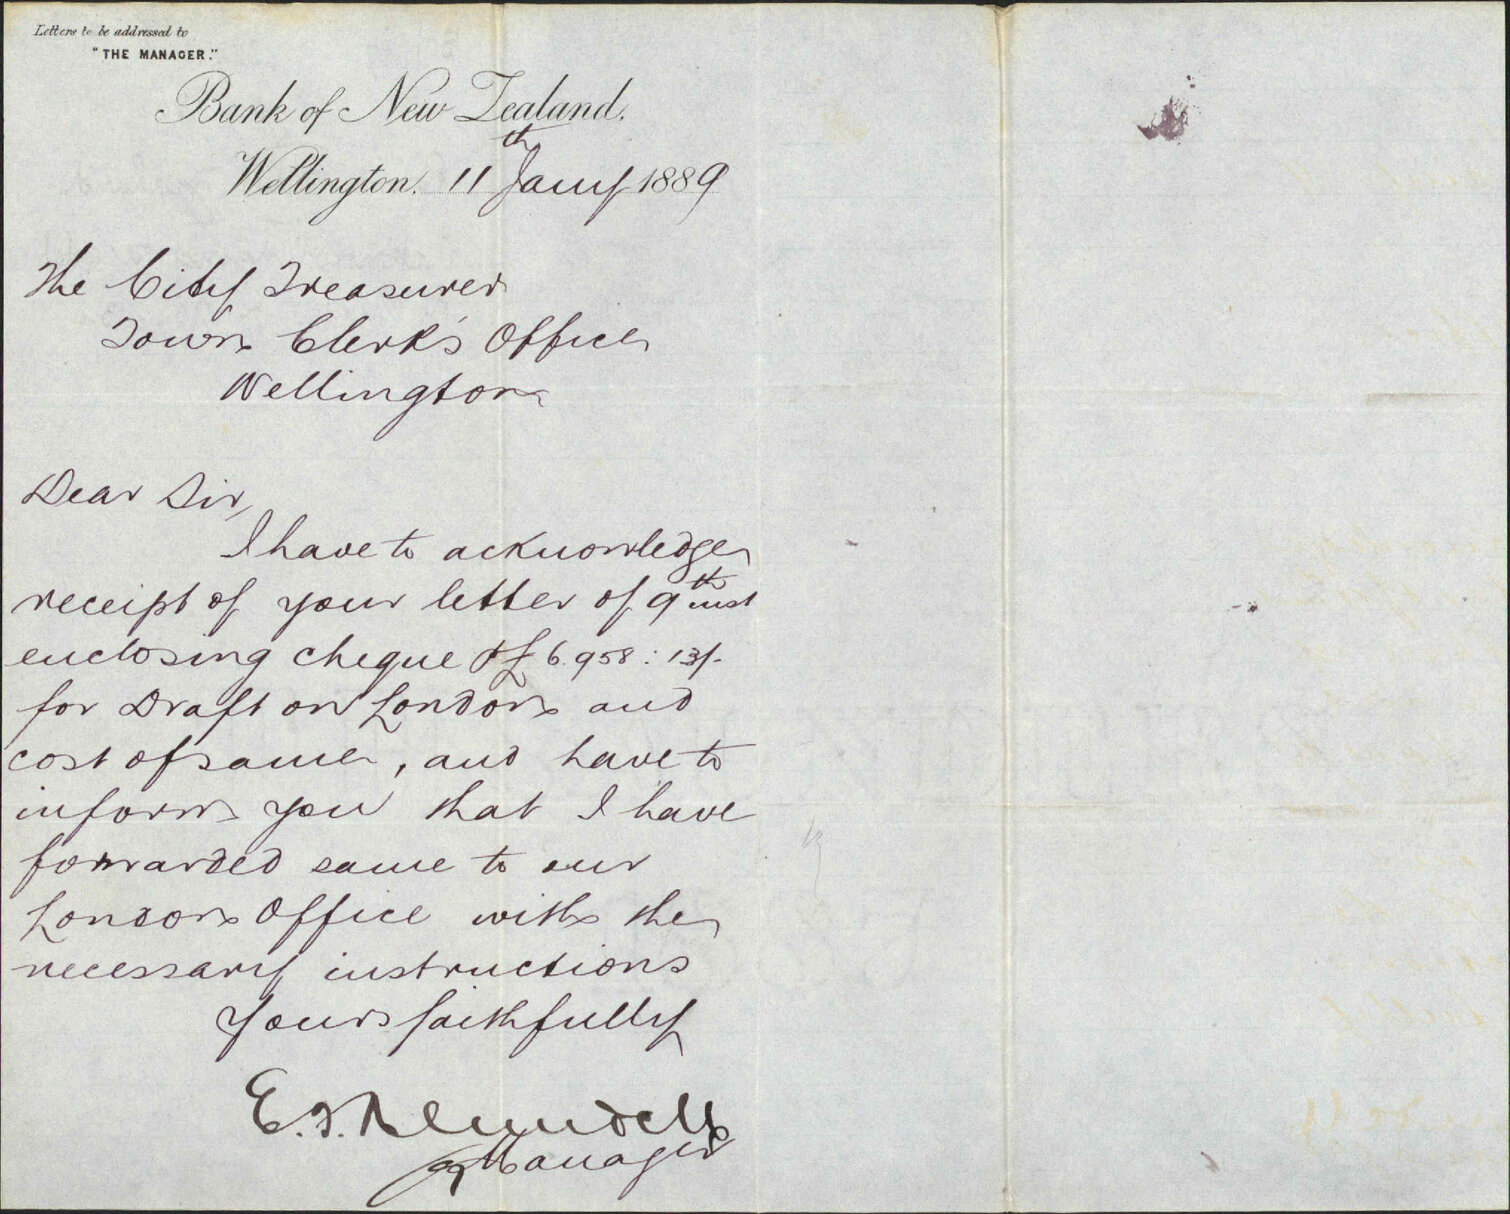 Letters to be addressed to
"THE MANAGER."
Bank of New Zealand.
Wellington. 11th Jany 1889
The City Treasurer
Town Clerk's Office
Wellington
Dear Sir,
I have to acknowledge
receipt of your letter of 9th inst
enclosing cheque £6.958:13/-
for Draft on London and
cost of same, and have to
inform you that I have
forwarded same to our
London Office with the
necessary instructions
Yours faithfully
E.
Manager